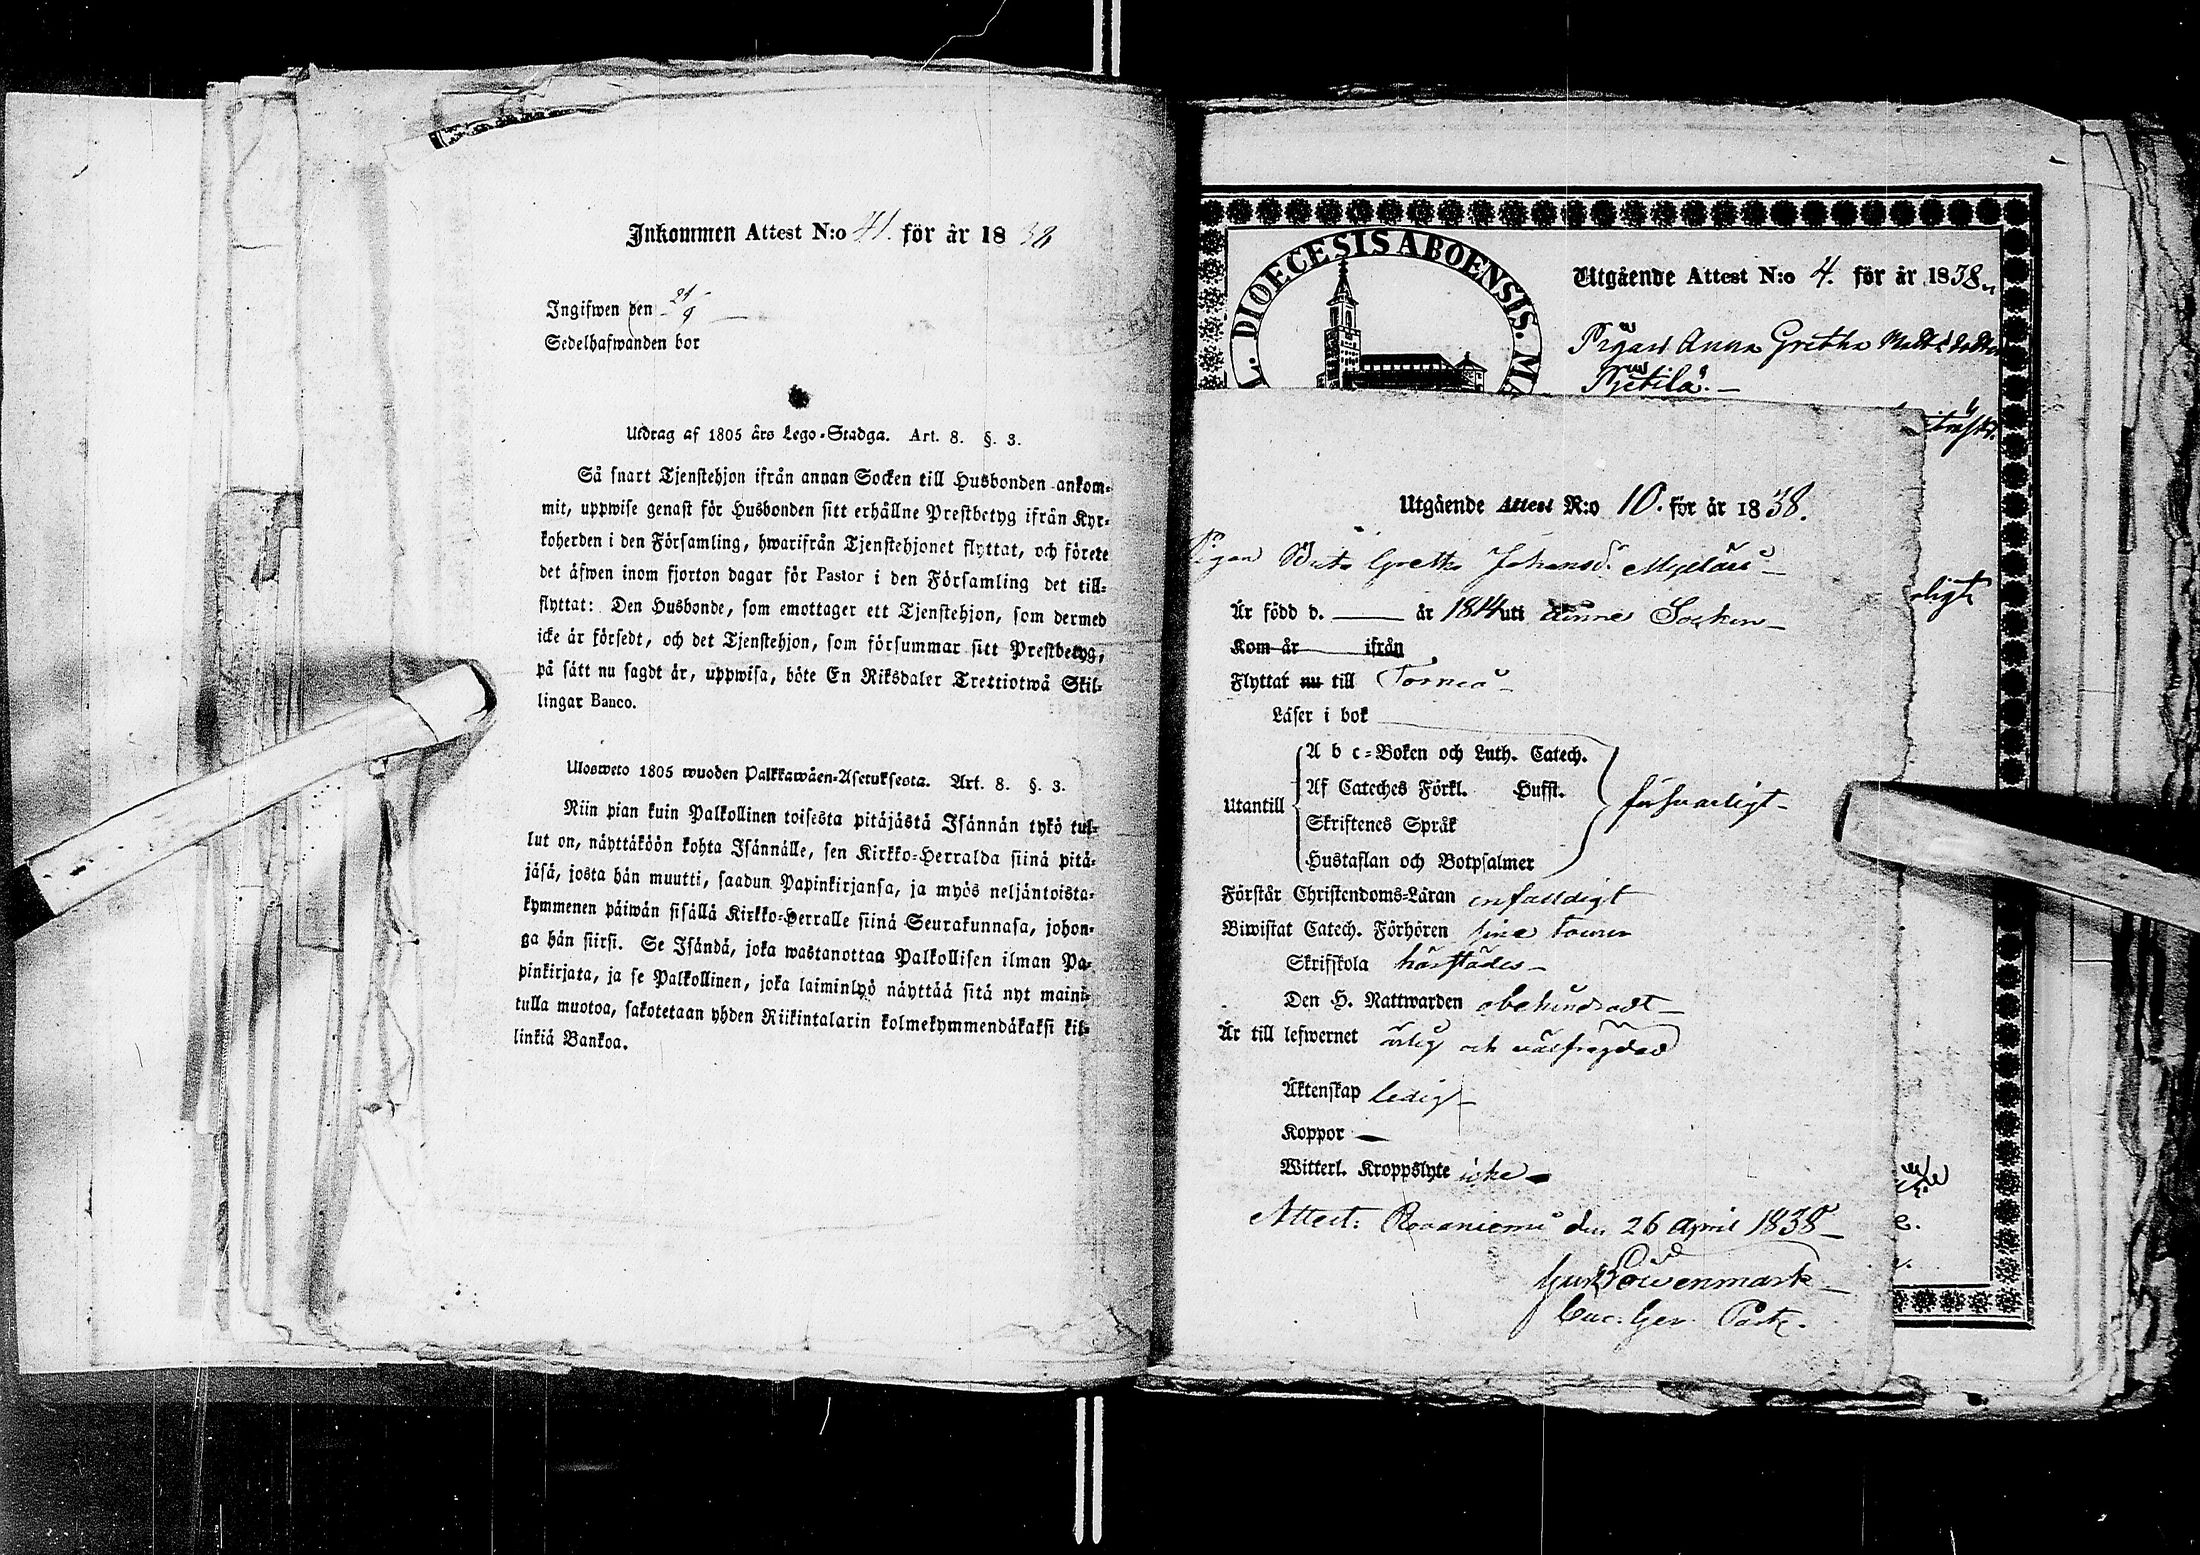 Inkommen Attest N:o 41. för år 1838
Ingifwen den 21/9
Sedelhafwanden bor
Utdrag af 1805 års Lego-Stadga. Art. 8. §. 3.
Så snart Tjenstehjon ifrån annan Socken till Husbonden ankom-
mit, uppwise genast för Husbonden sitt erhållne Prestbetyg ifrån Kyr-
koherden i den Församling, hwarifrån Tjenstehjonet flyttat, och förete
det äfwen inom fjorton dagar för Pastor i den Församling det till-
flyttat: Den Husbonde, som emottager ett Tjenstehjon, som dermed
icke är försedt, och det Tjenstehjon, som försummar sitt Prestbetyg,
på sätt nu sagdt är, uppwisa, böte En Riksdaler Trettiotwå Skil-
lingar Banco.
Ulosweto 1805 wuoden Palkkawäen-Asetuksesta. Art. 8. §. 3.
Niin pian kuin Palkollinen toisesta pitäjästä Isännän tykö tul-
lut on, näyttäköön kohta Isännälle, sen Kirkko-Herralda siinä pitä-
jäsä, josta hän muutti, saadun Papinkirjansa, ja myös neljäntoista-
kymmenen päiwän sisällä Kirkko-Herralle siinä Seurakunnasa, johon-
ga hän siirsi. Se Isändä, joka wastanottaa Palkollisen ilman Pa-
pinkirjata, ja se Palkollinen, joka laiminlyö näyttää sitä nyt maini-
tulla muotoa, sakotetaan yhden Riikintalarin kolmekymmendäkaksi kil-
linkiä Bankoa.
DIOECESIS ABOENSIS.
Utgående Attest N:o 4. för år 1838.
Pigan Anna Gretha Matts dotter
Pjetilä.
Utgående Attest N:o 10. för år 1838.
Pigan Brita Gretha Johansd:r
Är född d. — år 1814 uti denne Socken
Kom år ifrån
Flyttar nu till Torneå
Läser i bok
Utantill
A b c-Boken och Luth. Catech.
Af Cateches Förkl. Hufst.
Skriftenes Språk
Hustaflan och Botpsalmer
försvarligt
Förstår Christendoms-Läran enfaldigt
Biwistat Catech. Förhören sine tourer
Skrifskola härstädes
Den H. Nattwarden obehindradt
Är till lefwernet ärlig och välfrägdad
Äktenskap ledig
Koppor —
Witterl. Kroppslyte icke
Attest: Rovaniemi den 26 April 1838